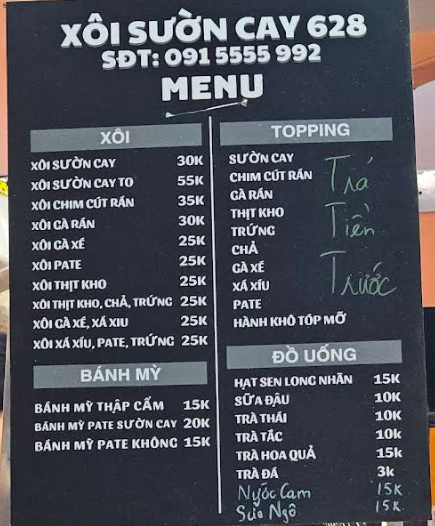 XÔI SƯỜN CAY 628
SĐT: 091 5555 992
MENU
XÔI
XÔI SƯỜN CAY 30K
XÔI SƯỜN CAY TO 55K
XÔI CHIM CÚT RÁN 35K
XÔI GÀ RÁN 30K
XÔI GÀ XÉ 25K
XÔI PATE 25K
XÔI THỊT KHO 25K
XÔI THỊT KHO, CHẢ, TRỨNG 25K
XÔI GÀ XÉ, XÁ XIU 25K
XÔI XÁ XÍU, PATE, TRỨNG 25K
BÁNH MỲ
BÁNH MỲ THẬP CẨM 15K
BÁNH MỲ PATE SƯỜN CAY 20K
BÁNH MỲ PATE KHÔNG 15K
TOPPING
SƯỜN CAY
CHIM CÚT RÁN
GÀ RÁN
THỊT KHO
TRỨNG
CHẢ
GÀ XÉ
XÁ XÍU
PATE
HÀNH KHÔ TÓP MỠ
Trả
Tiền
Trước
ĐỒ UỐNG
HẠT SEN LONG NHÃN 15K
SỮA ĐẬU 10K
TRÀ THÁI 10K
TRÀ TẮC 10k
TRÀ HOA QUẢ 15k
TRÀ ĐÁ 3k
Nước Cam 15K
Sữa Ngô 15K